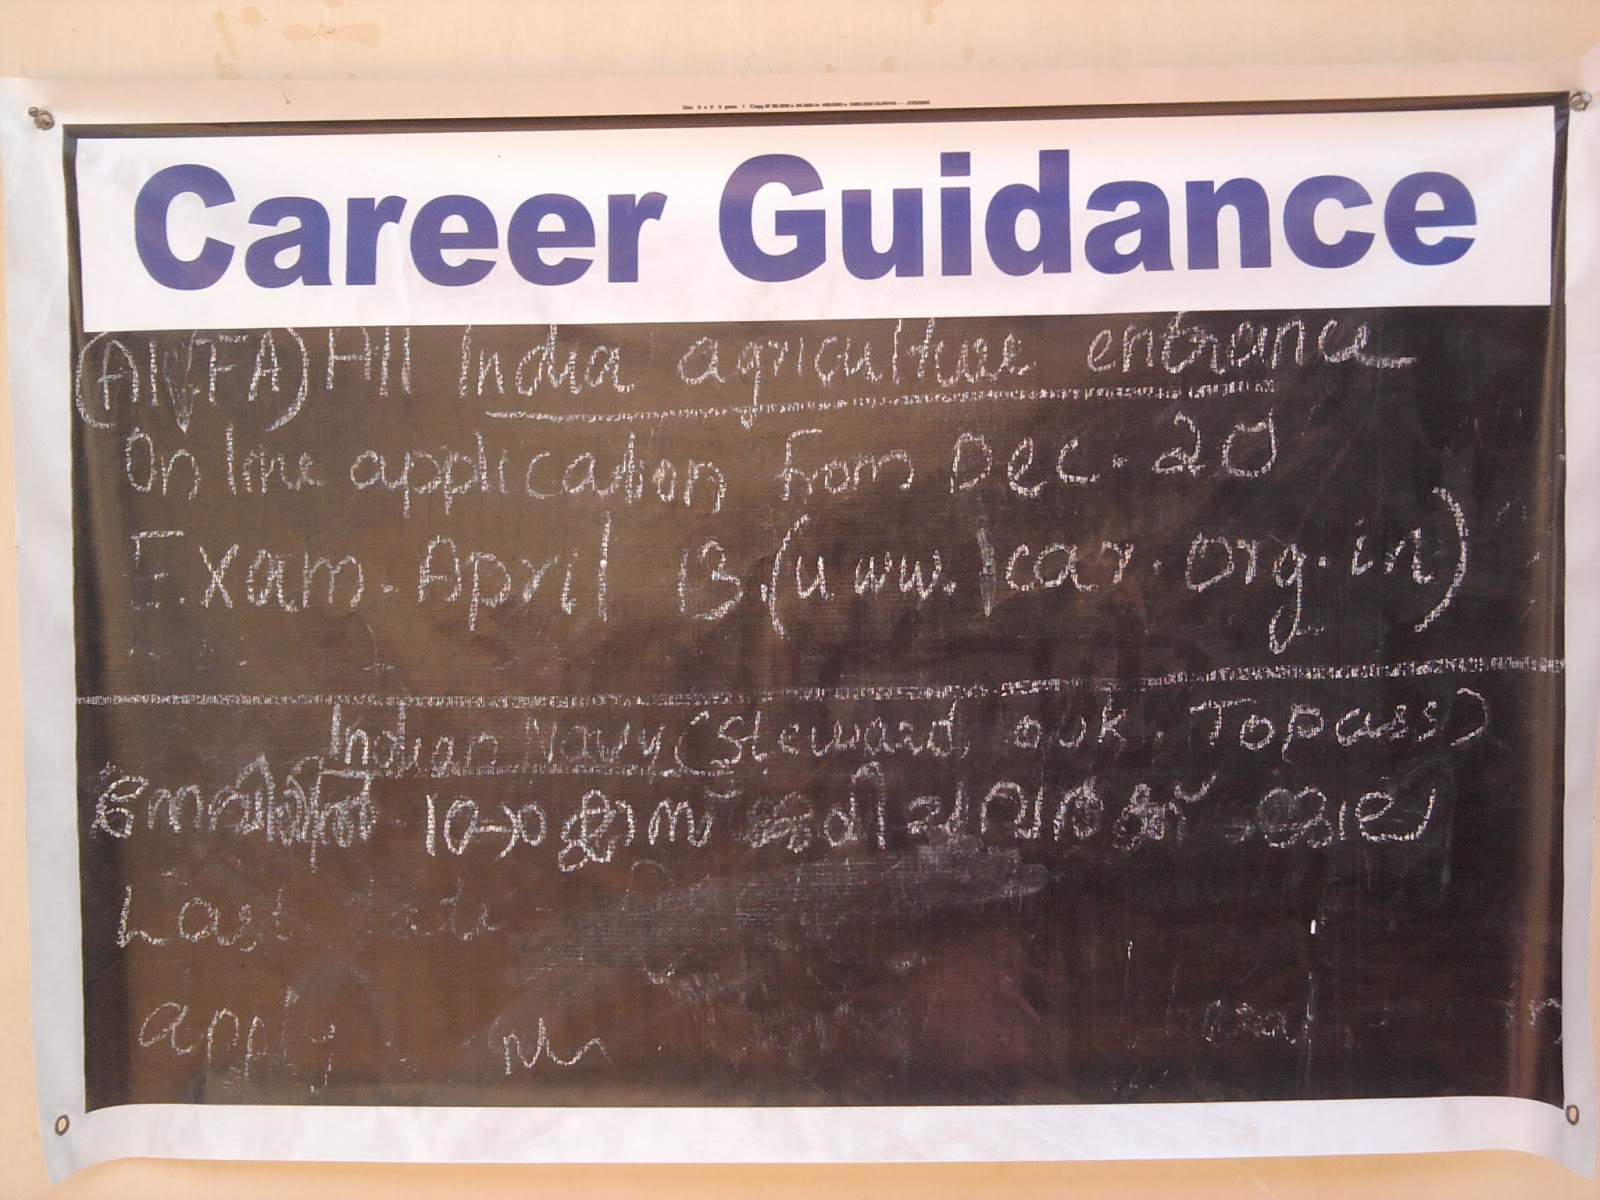 Career Guidance
(AI FA) All India agriculture entrance
Online application from Dec. 20
Exam. April 13. (www.Icar.org.in)
Indian Navy (Steward ook. Topass)
നേവിയിൽ 10-ാം ക്ലാസ് കഴിഞ്ഞവർക്ക് ജോലി
Last date
apply